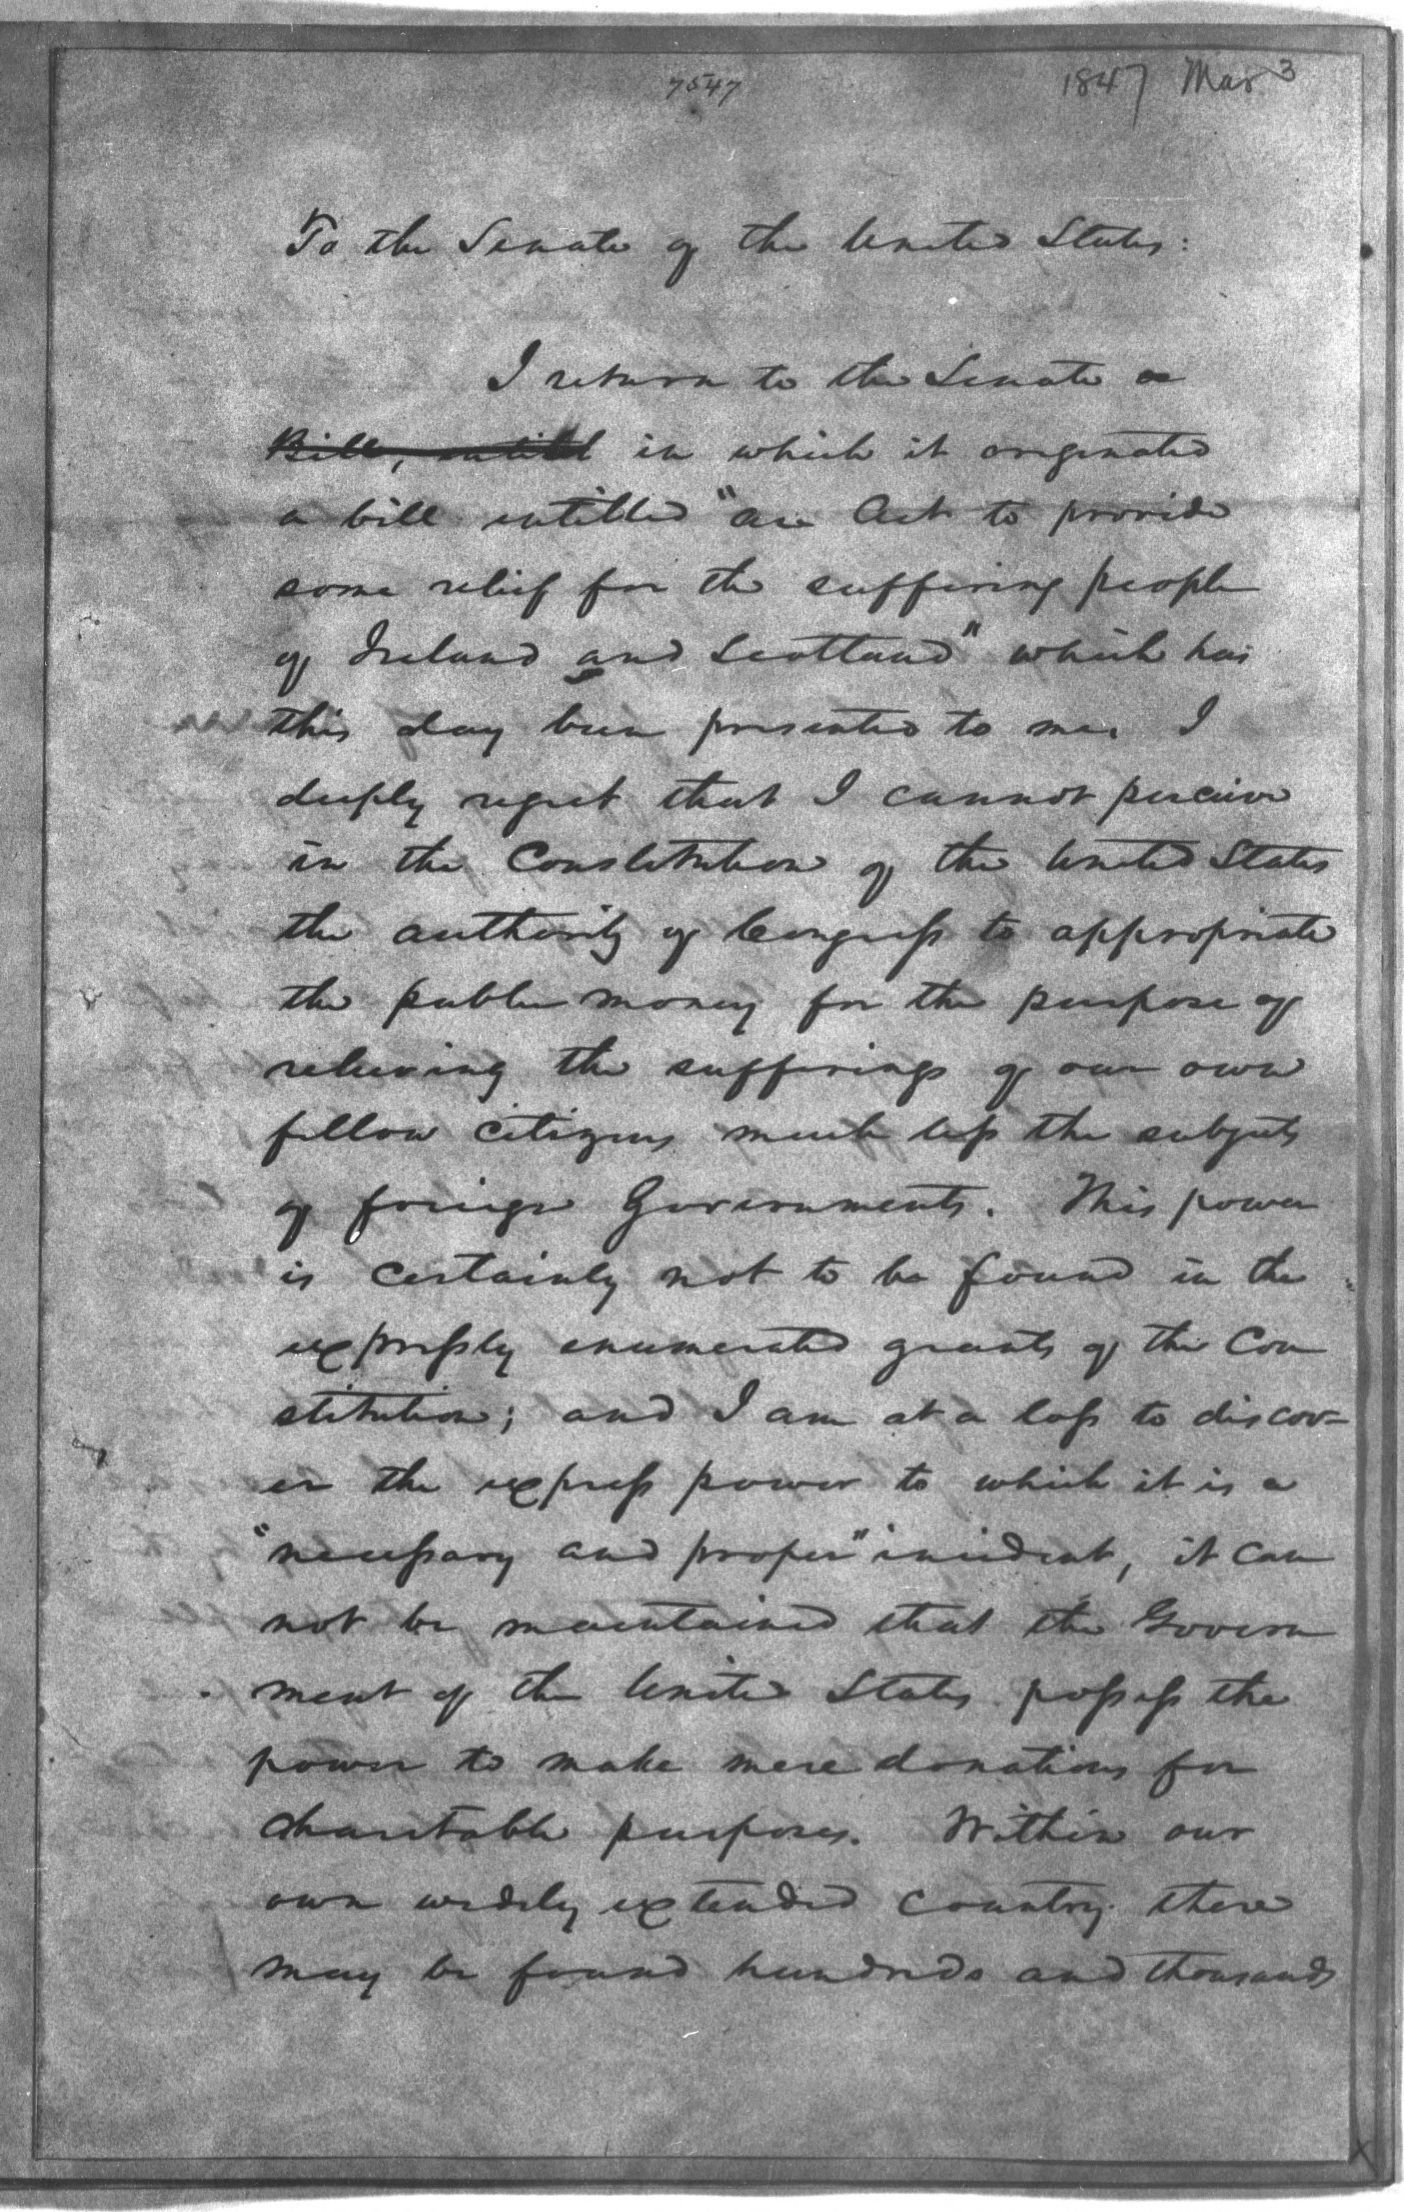 7547
1847 Mar 3
To the Senate of the United States:
I return to the Senate a
Bill, entitled in which it originated
a bill entitled "an Act to provide
some relief for the suffering people
of Ireland and Scotland" which has
this day been presented to me. I
deeply regret that I cannot perceive
in the Constitution of the United States
the authority of Congress to appropriate
the public money for the purpose of
relieving the sufferings of our own
fellow citizens much less the subjects
of foreign Governments. This power
is certainly not to be found in the
expressly enumerated grants of the Con
stitution; and I am at a loss to discov-
er the express power to which it is a
"necessary and proper" incident, it can
not be maintained that the Govern
ment of the United States possess the
power to make mere donations for
charitable purposes. Within our
own widely extended country there
may be found hundreds and thousands